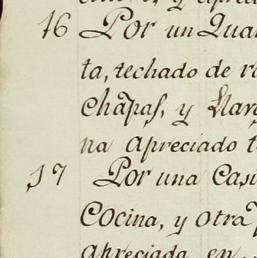 16 Por un Qua
ta, techado de r
chapas, y Llav
na Apreciado t
17 Por una Casi
Cocina, y otra
apreciada en